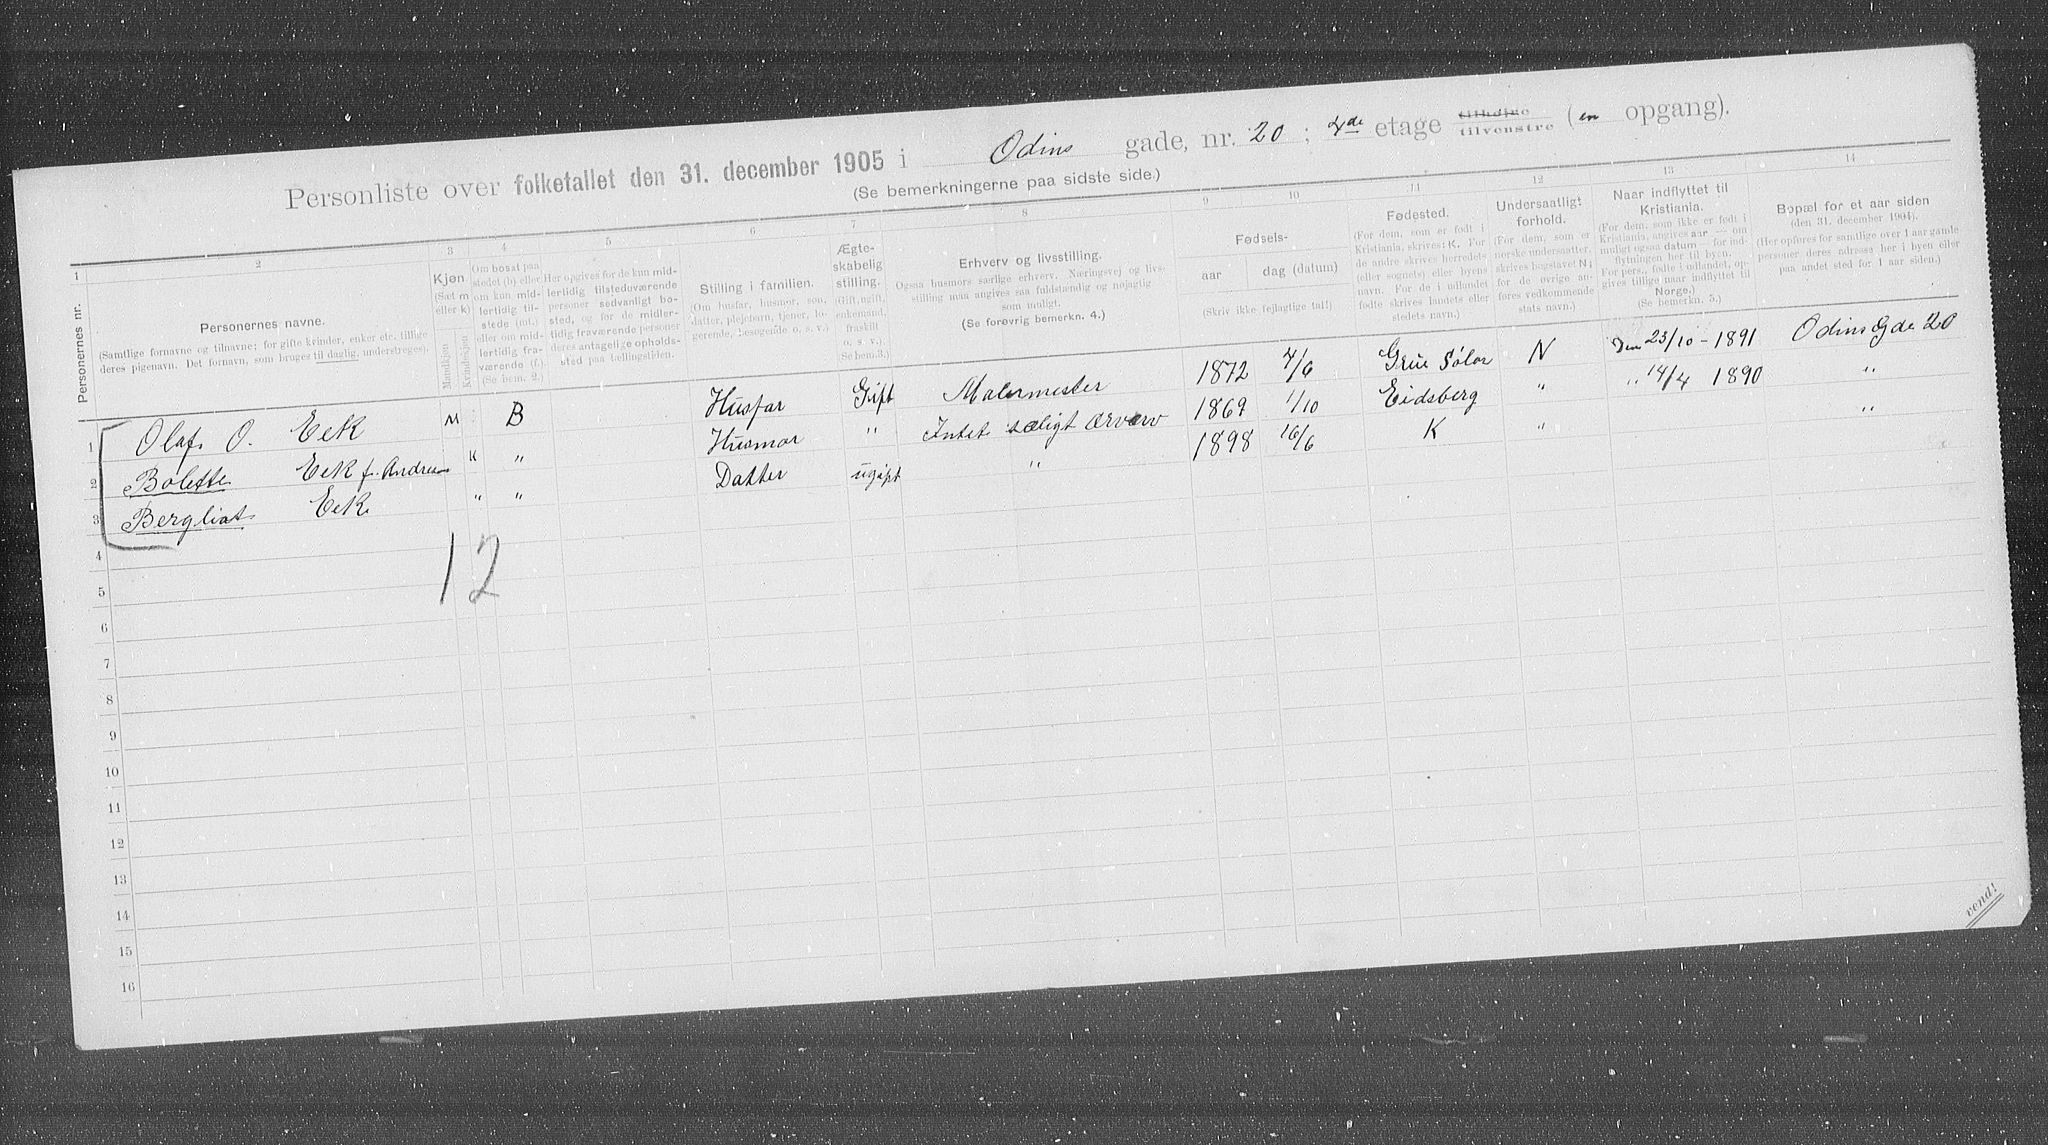 Personliste over folketallet den 31. december 1905 i Odins gade, nr. 20 ; 4de etage tilhøire tilvenstre (en opgang).
(Se bemerkningerne paa sidste side.)
1 2 3 4 5 6 7 8 9 10 11 12 13 14
Personernes nr.
Personernes navne.
(Samtlige fornavne og tilnavne; for gifte kvinder, enker etc. tillige
deres pigenavn. Det fornavn, som bruges til daglig, understreges).
Kjøn
(Sæt m
eller k)
Mandkjøn
Kvindekjøn
Om bosat paa
stedet (b) eller
om kun mid-
lertidig til-
stede (mt.)
eller om mid-
lertidig fra-
værende (f.).
(Se bem. 2.)
Her opgives for de kun mid-
lertidig tilstedeværende
personer sedvanligt bo-
sted, og for de midler-
tidig fraværende personer
deres antagelige opholds-
sted paa tællingstiden.
Stilling i familien.
(Om husfar, husmor, søn,
datter, plejebarn, tjener, lo-
gerende, besøgende o. s. v.)
Ægte-
skabelig
stilling.
(Gift, ugift,
enkemand,
fraskilt
o. s. v.)
(Se bem. 3.)
Erhverv og livsstilling.
Ogsaa husmors særlige erhverv. Næringsvej og livs-
stilling maa angives saa fuldstændig og nøjagtig
som muligt.
(Se forøvrig bemerkn. 4.)
Fødsels-
aar
dag (datum)
(Skriv ikke fejlagtige tal!)
Fødested.
(For dem, som er født i
Kristiania, skrives: K. For
de andre skrives herredets
(eller sognets) eller byens
navn. For de i udlandet
fødte skrives landets eller
stedets navn.)
Undersaatligt
forhold.
(For dem, som er
norske undersaatter,
skrives bogstavet N;
for de øvrige an-
føres vedkommende
stats navn.)
Naar indflyttet til
Kristiania.
(For dem, som ikke er født i
Kristiania, angives aar — om
muligt ogsaa datum — for ind-
flytningen her til byen.
For pers., fødte i udlandet, op-
gives tillige naar indflyttet til
Norge.)
(Se bemerkn. 5.)
Bopæl for et aar siden
(den 31. december 1904).
(Her opføres for samtlige over 1 aar gamle
personer deres adresse her i byen eller
paa andet sted for 1 aar siden.)
1 Olaf O. Eek M B Husfar Gift Malermester 1872 4/6 Grue Solør N Den 23/10 - 1891 Odins Gde 20
2 Bolette Eek f. Andresen K " Husmor " Intet særligt ærverv 1869 1/10 Eidsberg " " 14/4 1890 "
3 Bergliot Eek " " Datter ugift " 1898 16/6 K " "
4
12
5
6
7
8
9
10
11
12
13
14
15
16
vend!